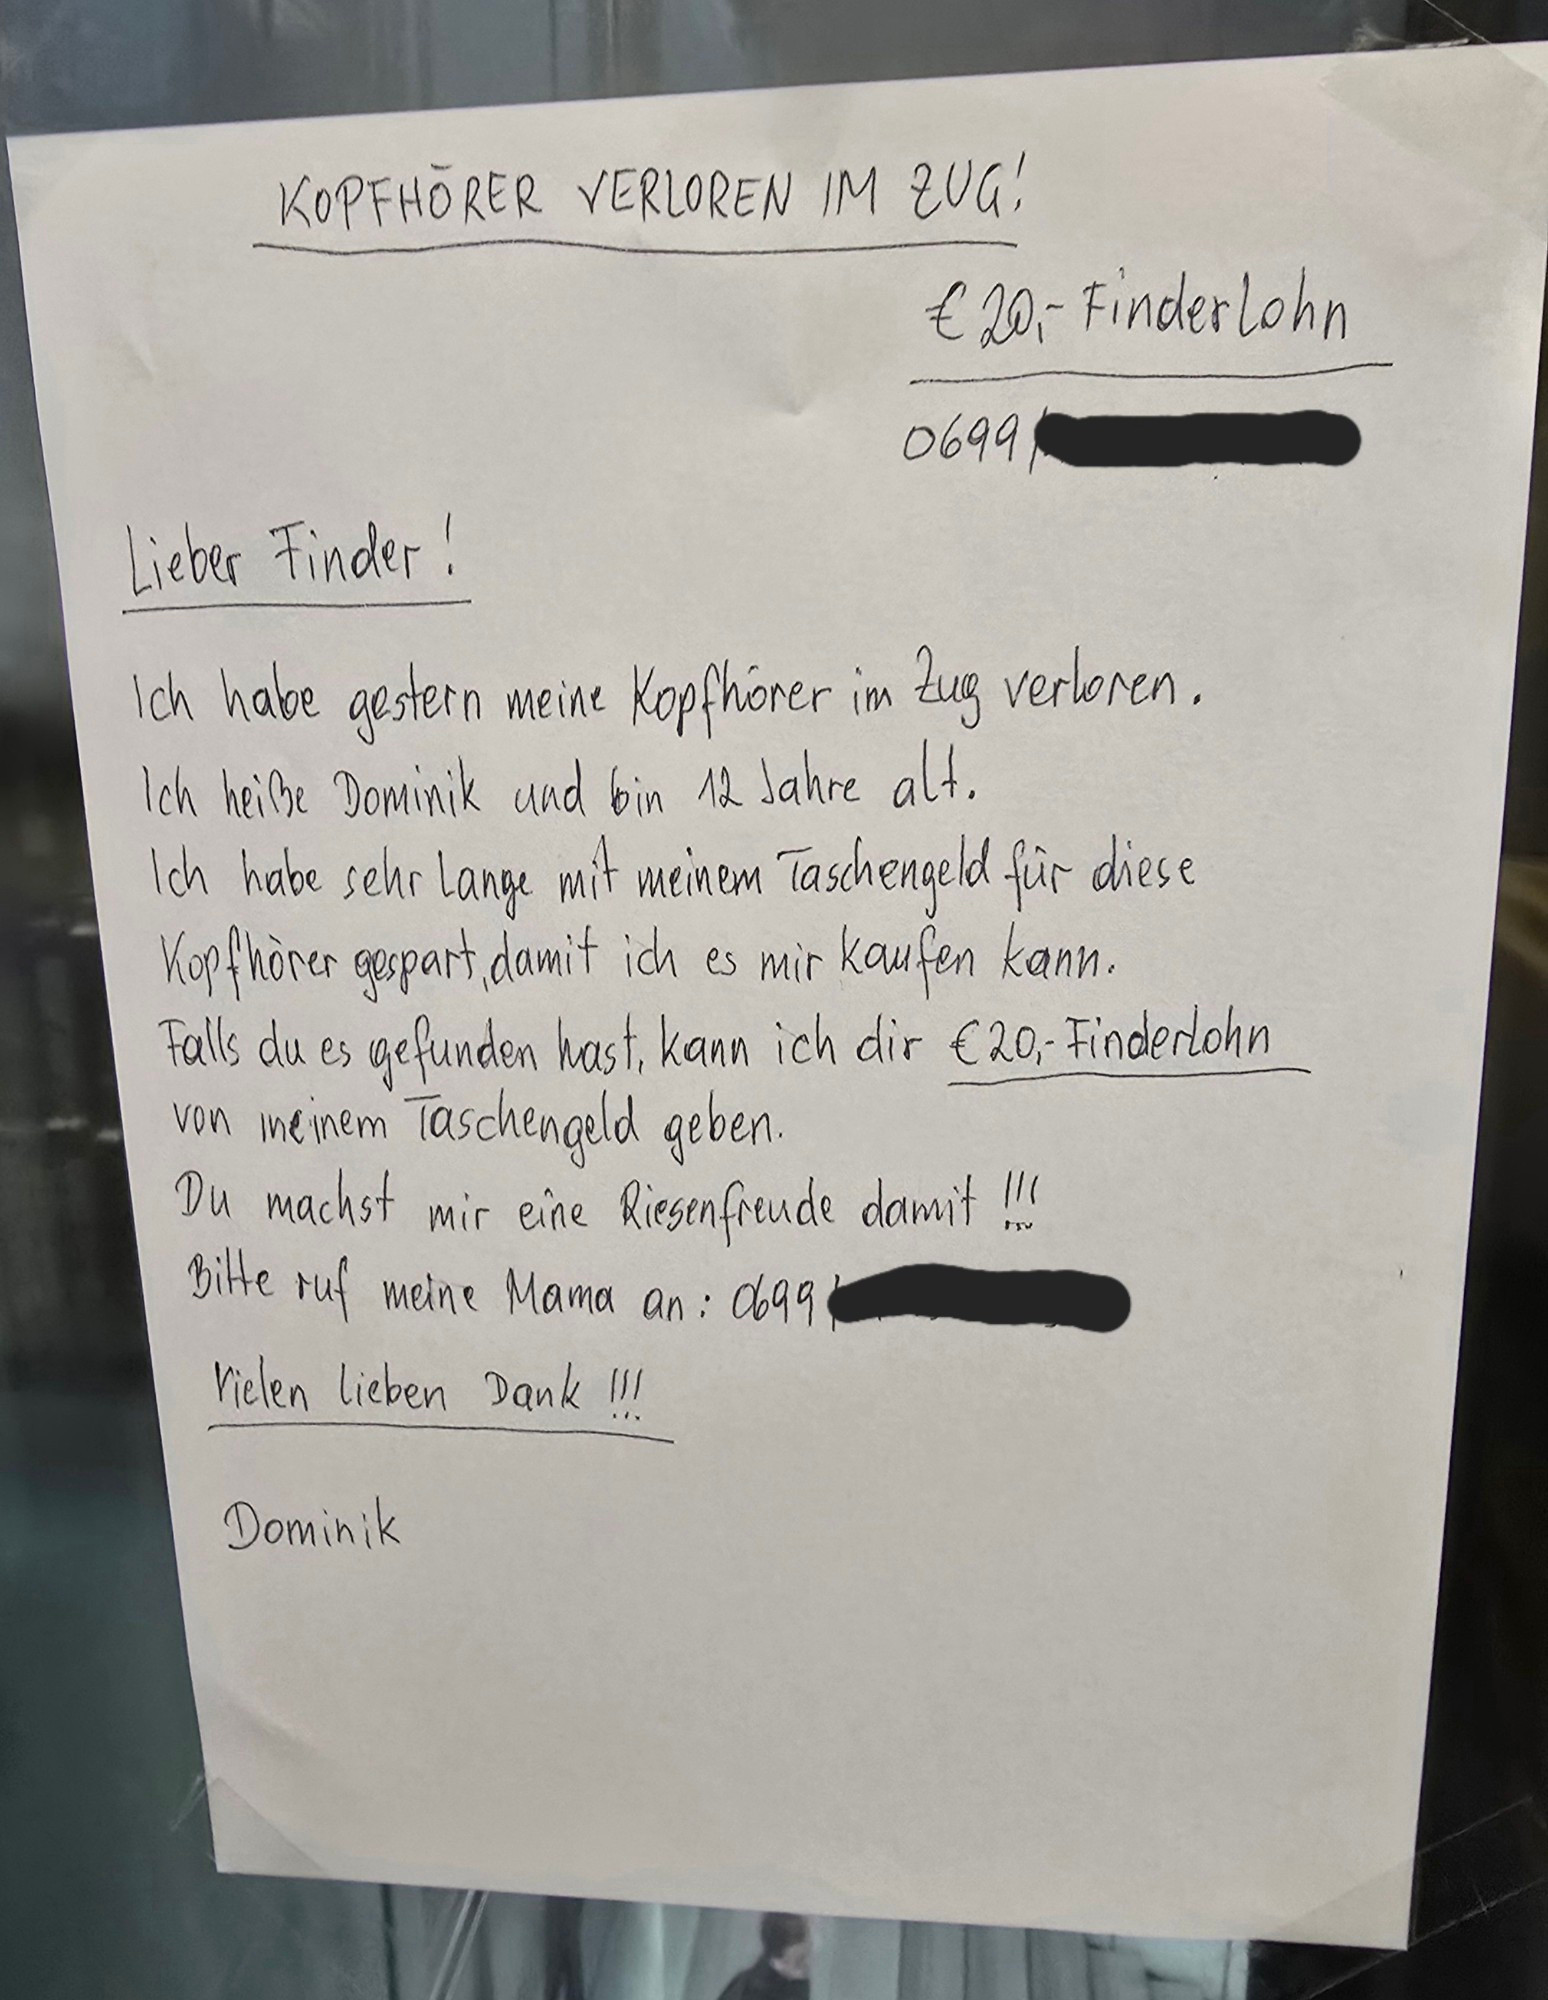 KOPFHÖRER VERLOREN IM ZUG!
€ 20,- Finderlohn
0699/
Lieber Finder!
Ich habe gestern meine Kopfhörer im Zug verloren.
Ich heiße Dominik und bin 12 Jahre alt.
Ich habe sehr lange mit meinem Taschengeld für diese
Kopfhörer gespart, damit ich es mir kaufen kann.
Falls du es gefunden hast, kann ich dir €20,- Finderlohn
von meinem Taschengeld geben.
Du machst mir eine Riesenfreude damit !!!
Bitte ruf meine Mama an: 0699/
Vielen lieben Dank !!!
Dominik